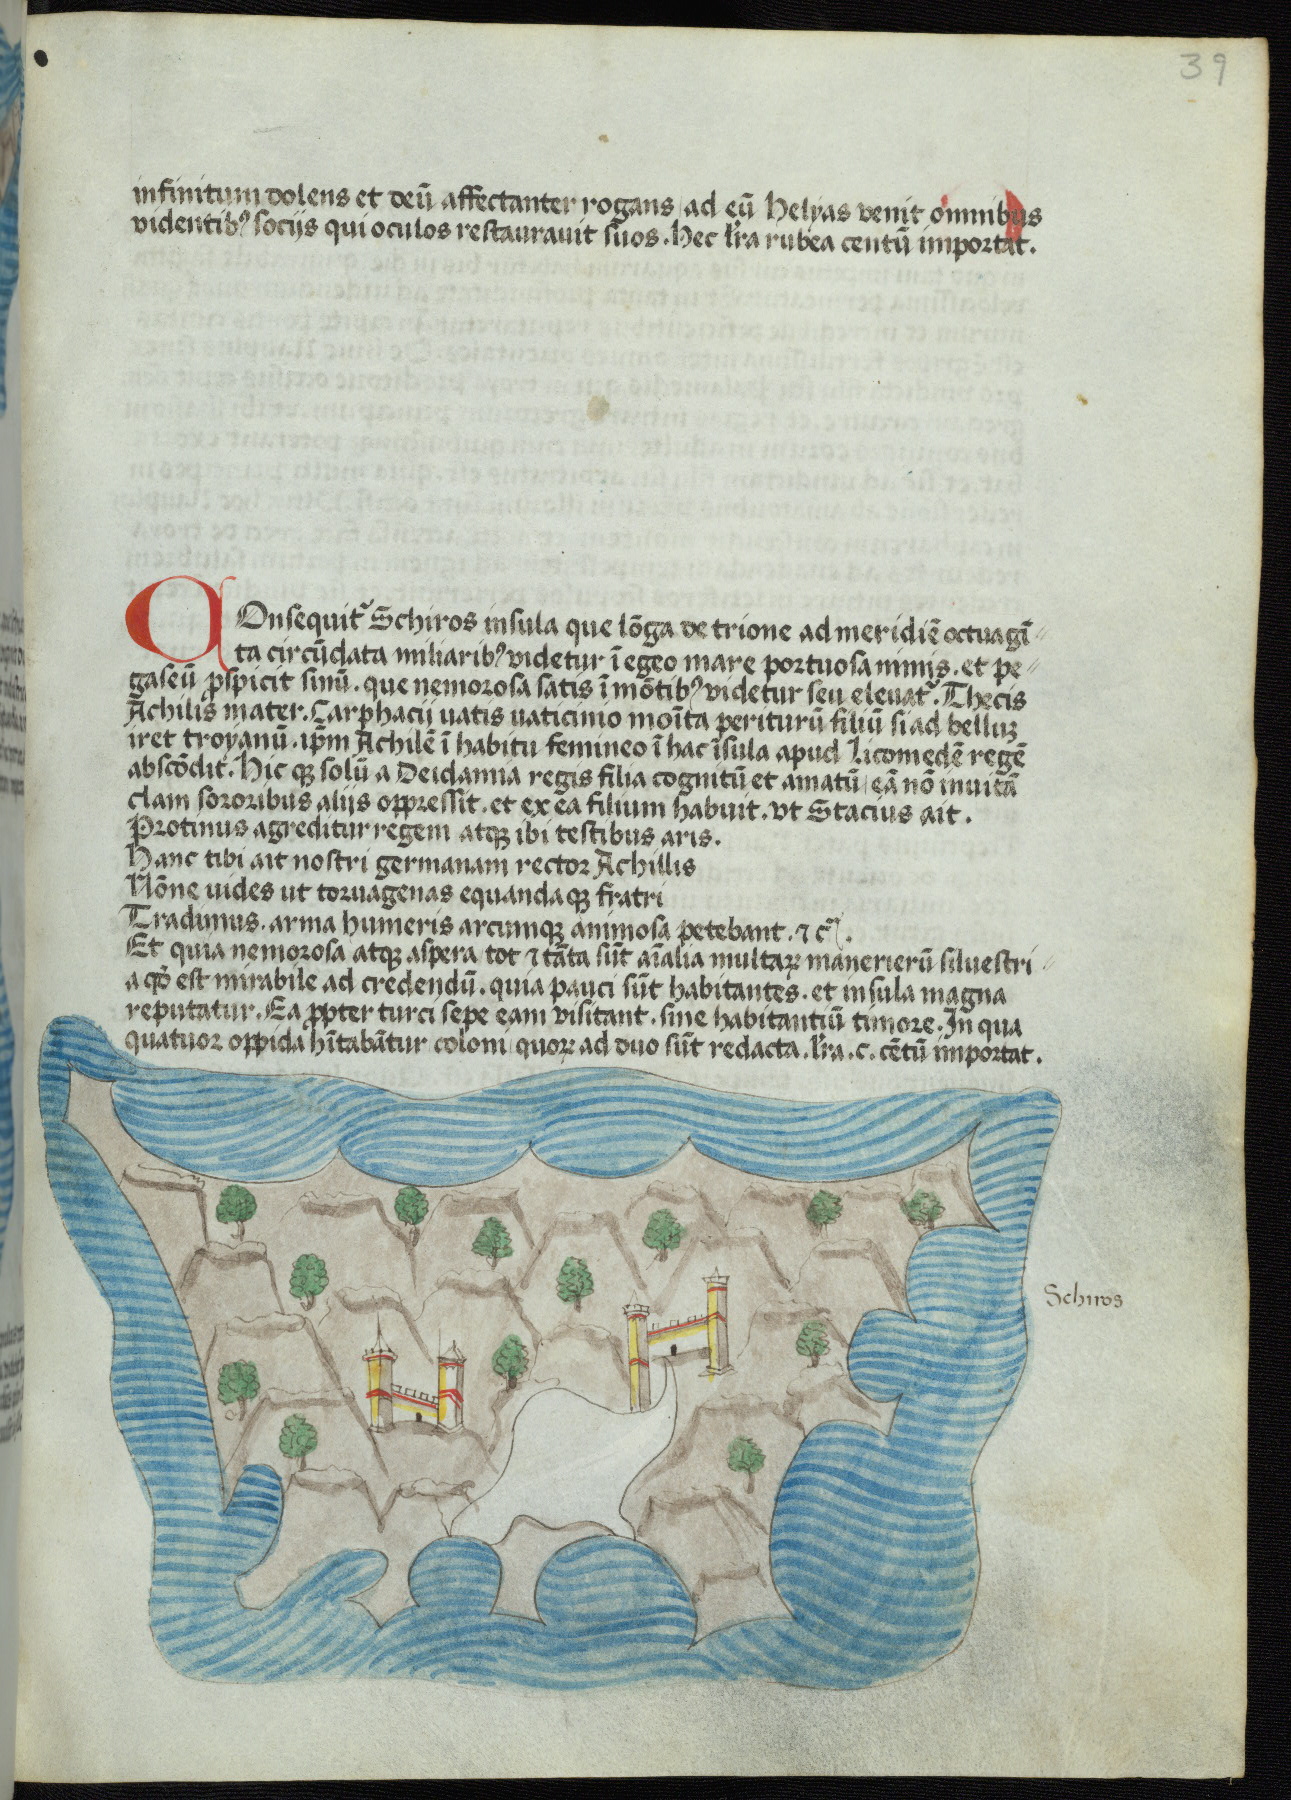 39
infinitum dolens et deū affectanter rogans / ad eū Helyas venit omnibus
videntibꝰ socijs qui oculos restaurauit suos. Hec lr̄a rubea centū importat.
COnsequit᷑ Schiros insula que lōga de trione ad meridiē octuagī-
ta circūdata miliaribꝰ videtur ī egeo mare portuosa nimis. et pe-
gaseū ꝓspicit sinū. que nemorosa satis ī mōtibꝰ videtur seu eleuat᷑. Thecis
Achilis mater. Carphacij uatis uaticinio moīta periturū filiū si ad belluꝫ
iret troyanū. ip̄m Achilē ī habitu femineo ī hac īsula apud Licomedē regē
abscōdit. Hic qꝫ solū a Deidamia regis filia cognitū et amatū / eā nō inuitā
clam sororibus alijs oppressit. et ex ea filium habuit. vt Stacius ait.
Protinus agreditur regem atqꝫ ibi testibus aris.
Hanc tibi ait nostri germanam rector Achillis
Nōne uides ut toruagenas equandaqꝫ fratri
Tradimus. arma humeris arcumqꝫ animosa petebant. ⁊ c̄.
Et quia nemorosa atqꝫ aspera tot ⁊ tāta sūt aīalia multaꝝ manerierū siluestri-
a qđ est mirabile ad credendū. quia pauci sūt habitantes. et insula magna
reputatur. Ea ꝓpter turci sepe eam visitant. sine habitantiū timore. In qua
quatuor oppida hītabātur coloni / quoꝝ ad duo sūt redacta. lr̄a .c. cētū importat.
Schiros